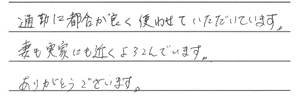 通勤に都合が良く使わせていただいています。
妻も実家にも近くよろこんでいます。
ありがとうございます。